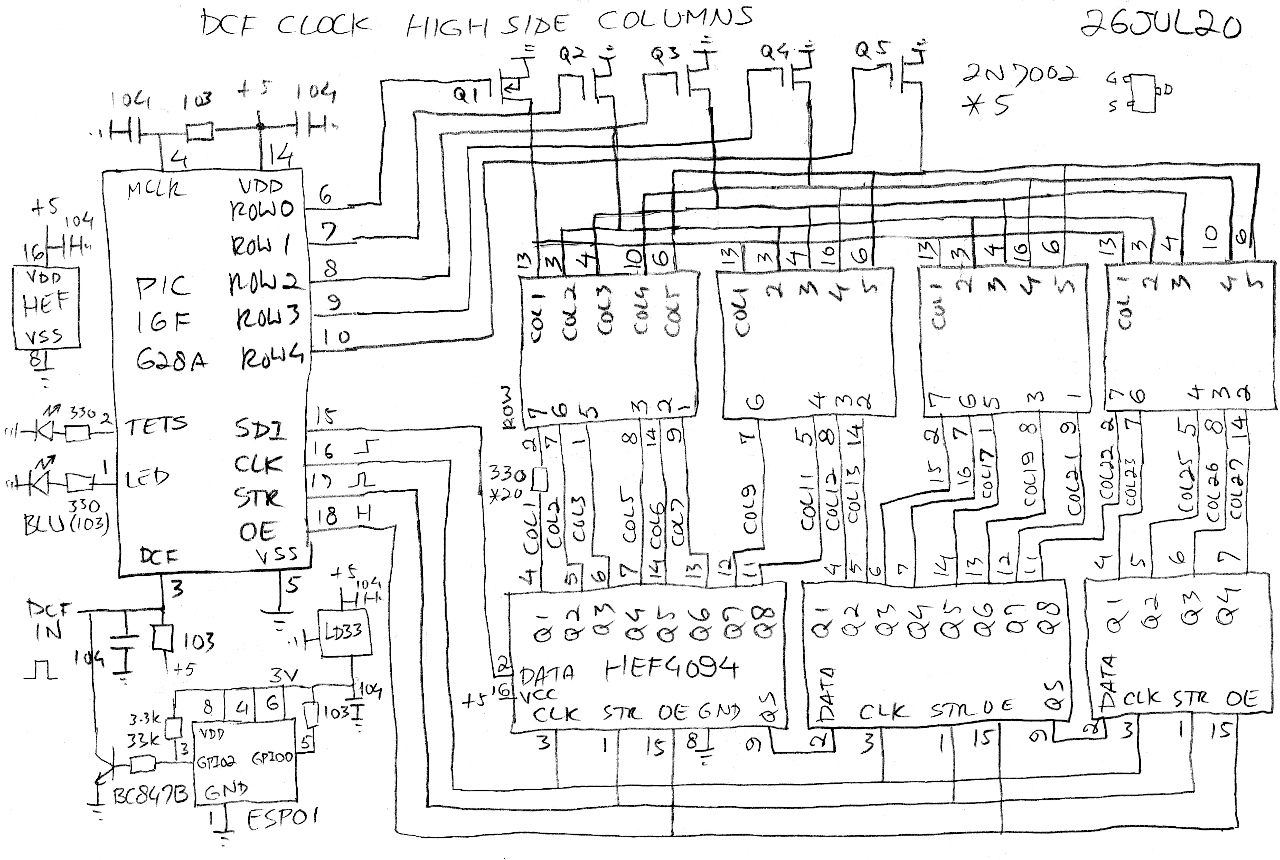 DCF CLOCK HIGH SIDE COLUMNS
26JUL20
Q1
Q2
Q3
Q4
Q5
2N7002
*5
G
S
D
104
103
+5
104
4
14
MCLR
VDD
ROW0
ROW1
ROW2
ROW3
ROW4
6
7
8
9
10
PIC
16F
628A
+5
104
16
VDD
HEF
VSS
8
330
2
TETS
1
LED
330
BLU(103)
SDI
CLK
STR
OE
15
16
17
18 H
DCF
VSS
3
5
DCF
IN
104
103
+5
+5
104
LD33
3V
104
103
3.3K
33K
8 4 6
VDD
3
GPIO2
GPIO0
5
GND
1
BC847B
ESP01
13 3 4 10 6
COL1
COL2
COL3
COL4
COL5
ROW
7 6 5 3 2 1
13 3 4 10 6
COL1
2 3 4 5
6 4 3 2
13 3 4 10 6
COL1
2 3 4 5
7 6 5 3 1
13 3 4 10 6
COL1
2 3 4 5
7 6 4 3 2
2 7 1 8 14 9
330
*20
COL1
COL2
COL3
COL5
COL6
COL7
7 5 8 14
COL9
COL11
COL12
COL13
2 7 1 8 9
15
16
COL17
COL19
COL21
2 7 5 8 14
COL22
COL23
COL25
COL26
COL27
4 5 6 7 14 13 12 11
Q1 Q2 Q3 Q4 Q5 Q6 Q7 Q8
2
DATA
HEF4094
+5 16
VCC
CLK STR OE GND QS
3 1 15 8 9
4 5 6 7 14 13 12 11
Q1 Q2 Q3 Q4 Q5 Q6 Q7 Q8
DATA
CLK STR OE QS
2 3 1 15 9
4 5 6 7
Q1 Q2 Q3 Q4
DATA
CLK STR OE
2 3 1 15